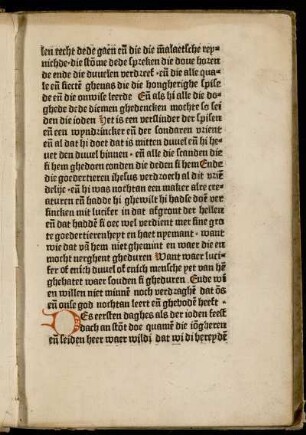 len recht dede gaen eñ die die malaetsche rey-
nichde·die stōme dede spreken die doue horen
de ende die duuelen verdreef·eñ die alle qua-
le eñ siecte ghenas die die hongherighe spise
de eñ die onwise leerde Eñ als hi alle die do-
ghede dede diemen ghedencken mochte so sei
den die ioden Het is een verslinder der spisen
eñ een wyndrincker eñ der sondaren vrient
eñ al dat hi doet dat is mitten duuel eñ hi he-
uet den duuel binnen·eñ alle die scanden die
si hem ghedoen conden die deden si hem Ende
die goedertieren ihesus verdroech al dit vriē
delijc·eñ hi was nochtan een maker alre cre-
aturen eñ hadde hi ghewilt hi hadse doen ver
sincken mit lucifer in dat afgront der hellen
eñ dat hadde si oec wel verdient mer sine gro
te goedertierenheyt en haet nyemant·want
wie dat vā hem niet ghemint en waer die en
mocht nerghent gheduren Want waer luci-
fer of enich duuel of enich mensche yet van hē
ghehatet waer souden si gheduren Ende wi
en willen niet minnē noch verdraghē dat ōs
eñ onse god nochtan leert eñ ghebodē heeft
DEs eersten daghes als der ioden feest
dach an stōt doe quamē die iōgheren
eñ seiden heer waer wilstu dat wi di bereydē